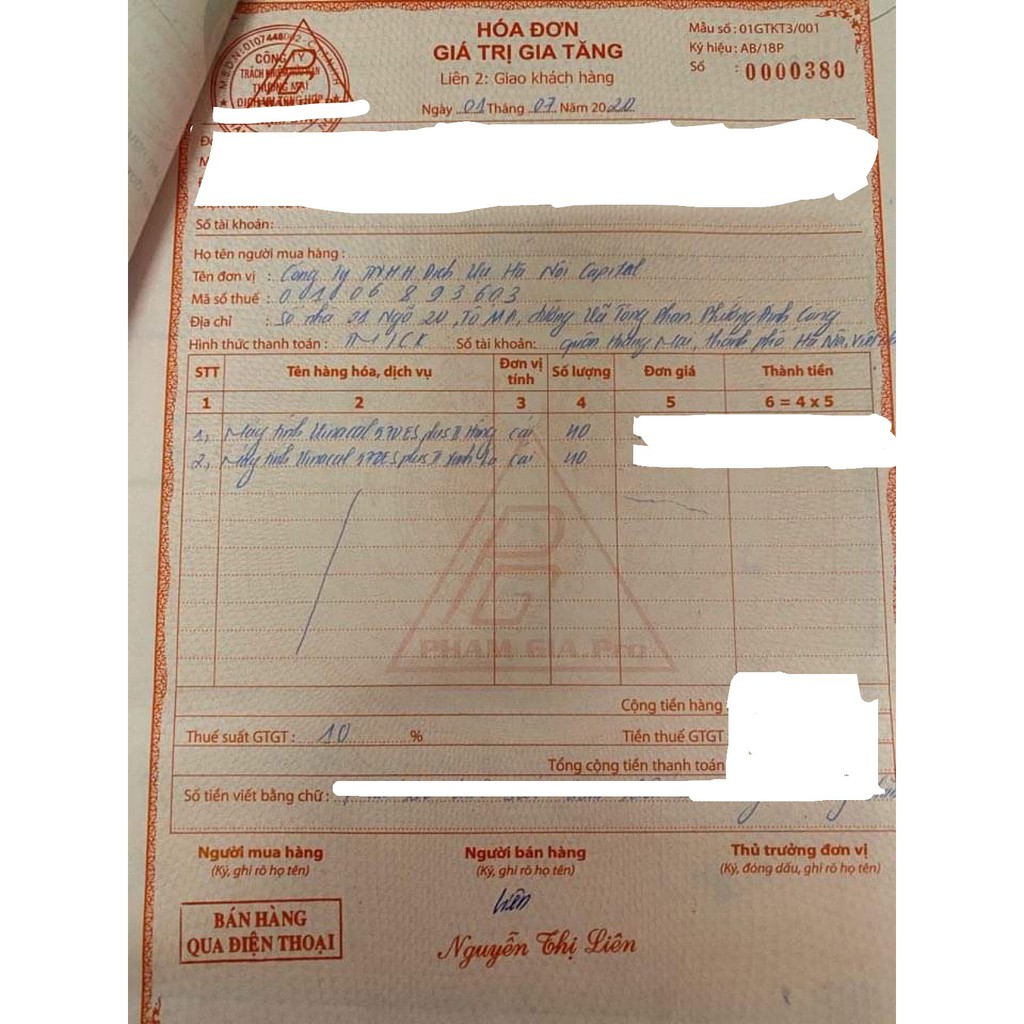 HÓA ĐƠN
GIÁ TRỊ GIA TĂNG
Liên 2: Giao khách hàng
Ngày 01 Tháng 07 Năm 2020
Mẫu số : 01GTKT3/001
Ký hiệu : AB/18P
Số : 0000380
CÔNG TY
TRÁCH NHIỆM HỮU HẠN
THƯƠNG MẠI
Số tài khoản:
Họ tên người mua hàng :
Tên đơn vị : Công Ty TNHH Dịch Vụ Hà Nội Capital
Mã số thuế : 0106893603
Địa chỉ : Số nhà 21 Ngõ 20, Tổ 11A, đường Vũ Tông Phan, Phường Định Công
Hình thức thanh toán : TM/CK Số tài khoản: quận Hoàng Mai, thành phố Hà Nội, Việt
STT Tên hàng hóa, dịch vụ Đơn vị tính Số lượng Đơn giá Thành tiền
1 2 3 4 5 6 = 4 x 5
1, Máy tính Vinacal 570ES plus II Hồng cái 40
2, Máy tính Vinacal 570ES plus II Xanh cái 40
PHAM GIA.Pro
Cộng tiền hàng
Thuế suất GTGT : 10 % Tiền thuế GTGT
Tổng cộng tiền thanh toán
Số tiền viết bằng chữ :
Người mua hàng Người bán hàng Thủ trưởng đơn vị
(Ký, ghi rõ họ tên) (Ký, ghi rõ họ tên) (Ký, đóng dấu, ghi rõ họ tên)
Liên
BÁN HÀNG
QUA ĐIỆN THOẠI
Nguyễn Thị Liên